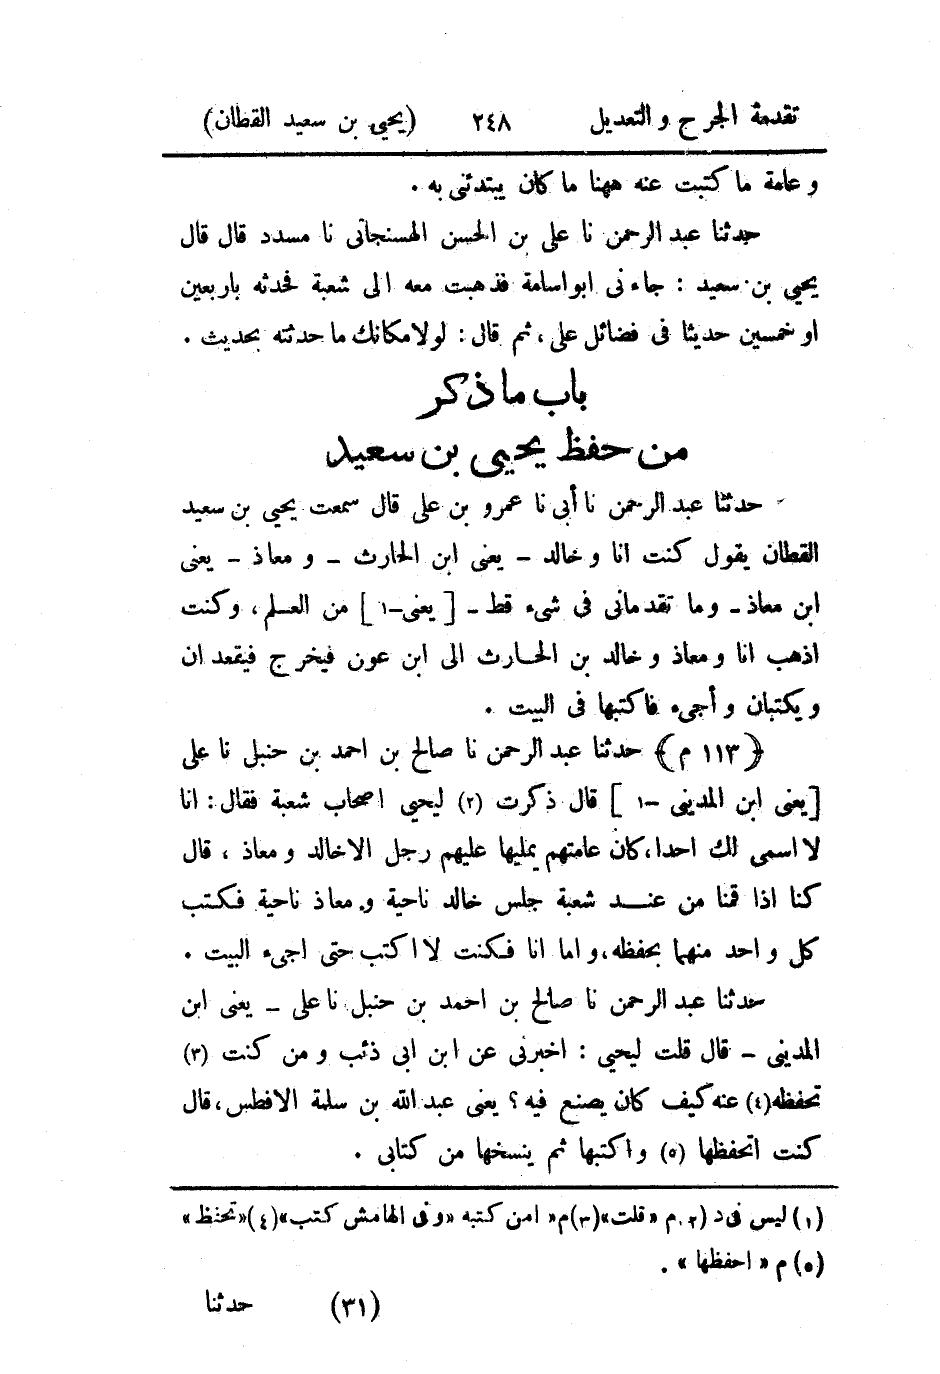 تقدمة الجرح والتعديل ٢٤٨ (يحيى بن سعيد القطان)
وعامة ما كتبت عنه ههنا ما كان يبتدئنى به .
حدثنا عبد الرحمن نا على بن الحسن الهسنجانى نا مسدد قال قال
يحيى بن سعيد : جاءنى ابو اسامة فذهبت معه الى شعبة فحدثه باربعين
او خمسين حديثا فى فضائل على ، ثم قال : لولا مكانك ما حدثته بحديث .
باب ما ذكر
من حفظ يحيى بن سعيد
حدثنا عبد الرحمن نا أبى نا عمرو بن على قال سمعت يحيى بن سعيد
القطان يقول كنت انا وخالد - يعنى ابن الحارث - و معاذ - يعنى
ابن معاذ - وما تقدمانى فى شىء قط - [ يعنى-١ ] من العلم ، وكنت
اذهب انا ومعاذ وخالد بن الحارث الى ابن عون فيخرج فيقعدان
ويكتبان وأجىء فاكتبها فى البيت .
﴿ ١١٣ م ﴾ حدثنا عبد الرحمن نا صالح بن احمد بن حنبل نا على
[يعنى ابن المدينى -١ ] قال ذكرت (٢) ليحيى اصحاب شعبة فقال : انا
لا اسمى لك احدا، كان عامتهم يمليها عليهم رجل الا خالد ومعاذ ، قال
كنا اذا قمنا من عند شعبة جلس خالد ناحية و معاذ ناحية فكتب
كل واحد منهما بحفظه، واما انا فكنت لا اكتب حتى اجىء البيت .
حدثنا عبد الرحمن نا صالح بن احمد بن حنبل نا على - يعنى ابن
المدينى - قال قلت ليحيى : اخبرنى عن ابن ابى ذئب ومن كنت (٣)
تحفظه(٤) عنه كيف كان يصنع فيه ؟ يعنى عبد الله بن سلمة الافطس، قال
كنت اتحفظها (٥) واكتبها ثم ينسخها من كتابى .
(١) ليس فى د (٢) م « قلت»(٣) م« امن كتبه «وفى الهامش كتب»(٤)«تحفظ»
(٥) م « احفظها » .
(٣١) حدثنا